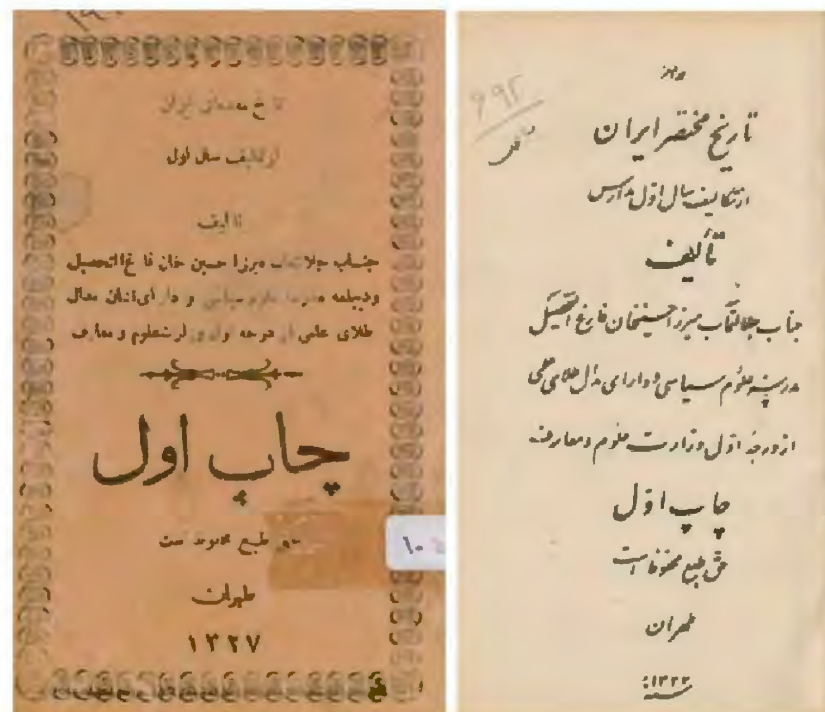 تاریخ مقدماتی ایران
از تکالیف سال اول
تالیف
جناب جلالتمآب میرزا حسین خان فارغ التحصیل
و دیپلمه مدرسه علوم سیاسی و دارای نشان مدال
طلای علمی از درجه اول وزارت علوم و معارف
چاپ اول
حق طبع محفوظ است
طهران
۱۳۲۷
۱۰
۶۹۲
تاریخ مختصر ایران
از تکالیف سال اول مدارس
تألیف
جناب جلالتمآب میرزا حسینخان فارغ التحصیل
مدرسه علوم سیاسی و دارای مدال طلای علمی
از درجه اول وزارت علوم و معارف
چاپ اوّل
حق طبع محفوظ است
طهران
سنه ۱۳۲۳